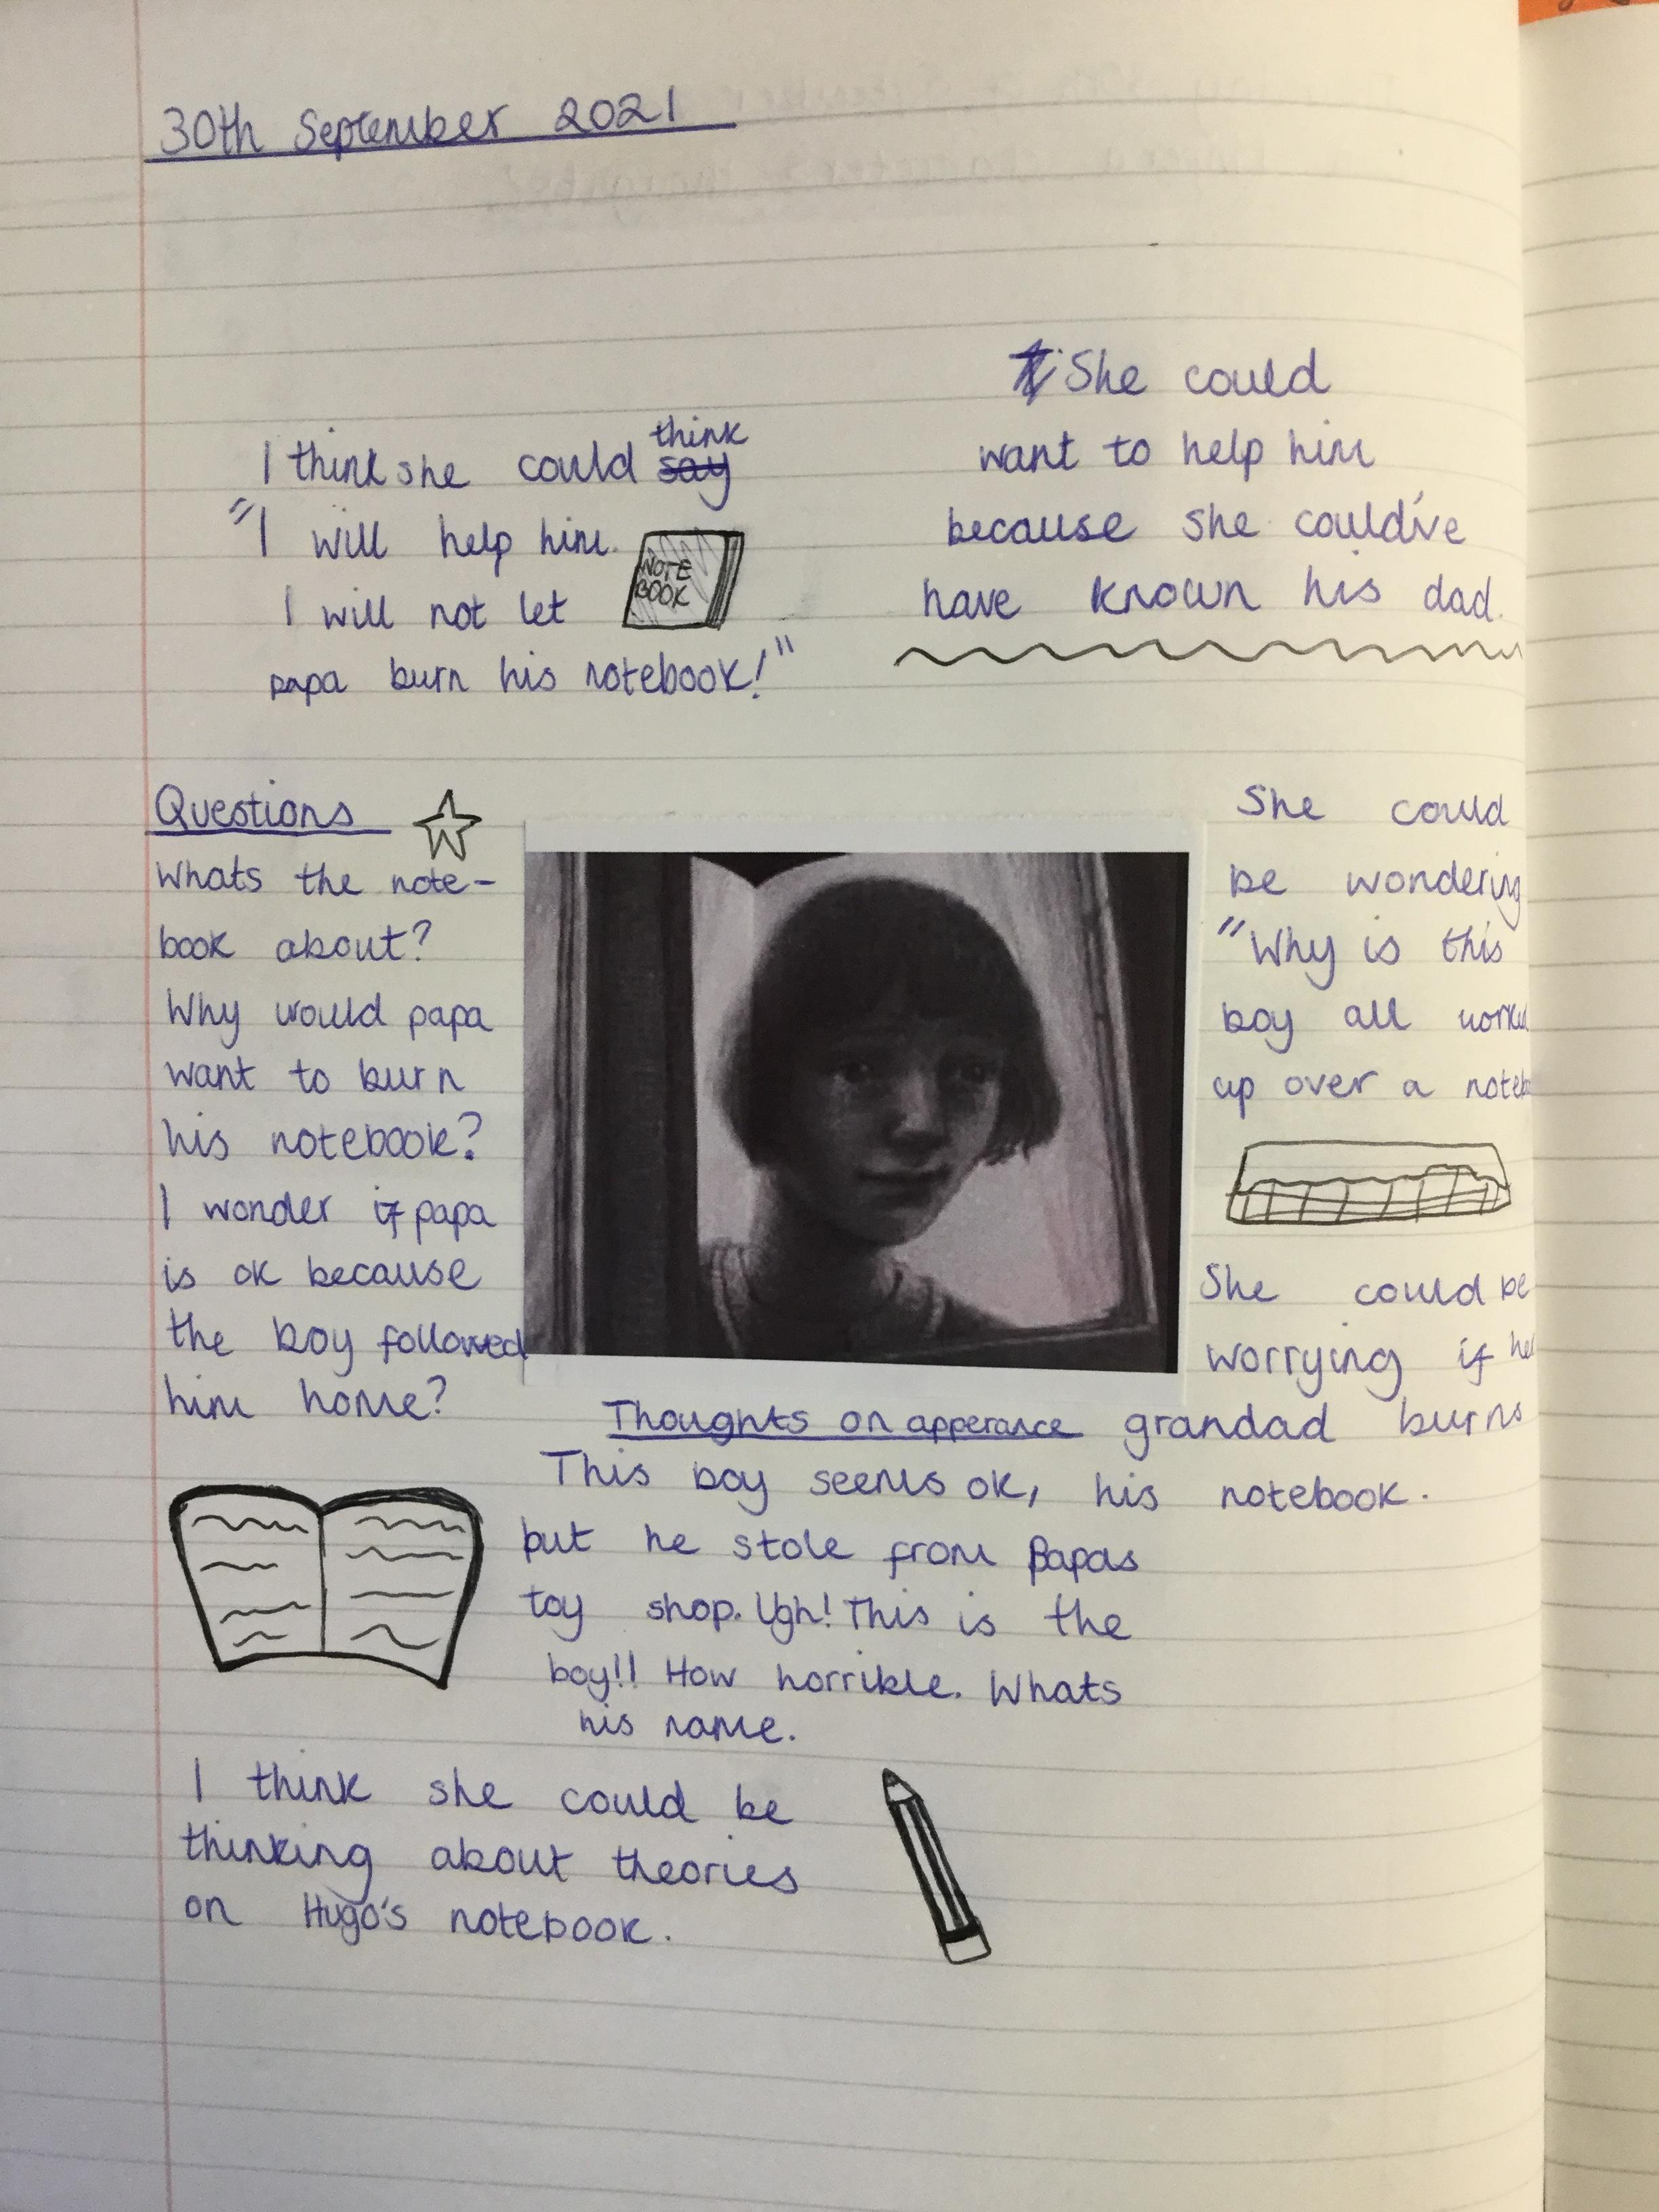 30th September 2021
I think she could say think
"I will help him.
I will not let
papa burn his notebook!"
NOTE
BOOK
She could
want to help him
because she could've
have known his dad.
Questions
Whats the note-
book about?
Why would papa
want to burn
his notebook?
I wonder if papa
is ok because
the boy followed
him home?
She could
be wondering
"Why is this
boy all
up over a
She could be
worrying if her
grandad burns
his notebook.
Thoughts on apperance
This boy seems ok,
but he stole from Papas
toy shop. Ugh! This is the
boy!! How horrible. Whats
his name.
I think she could be
thinking about theories
on Hugo's notebook.